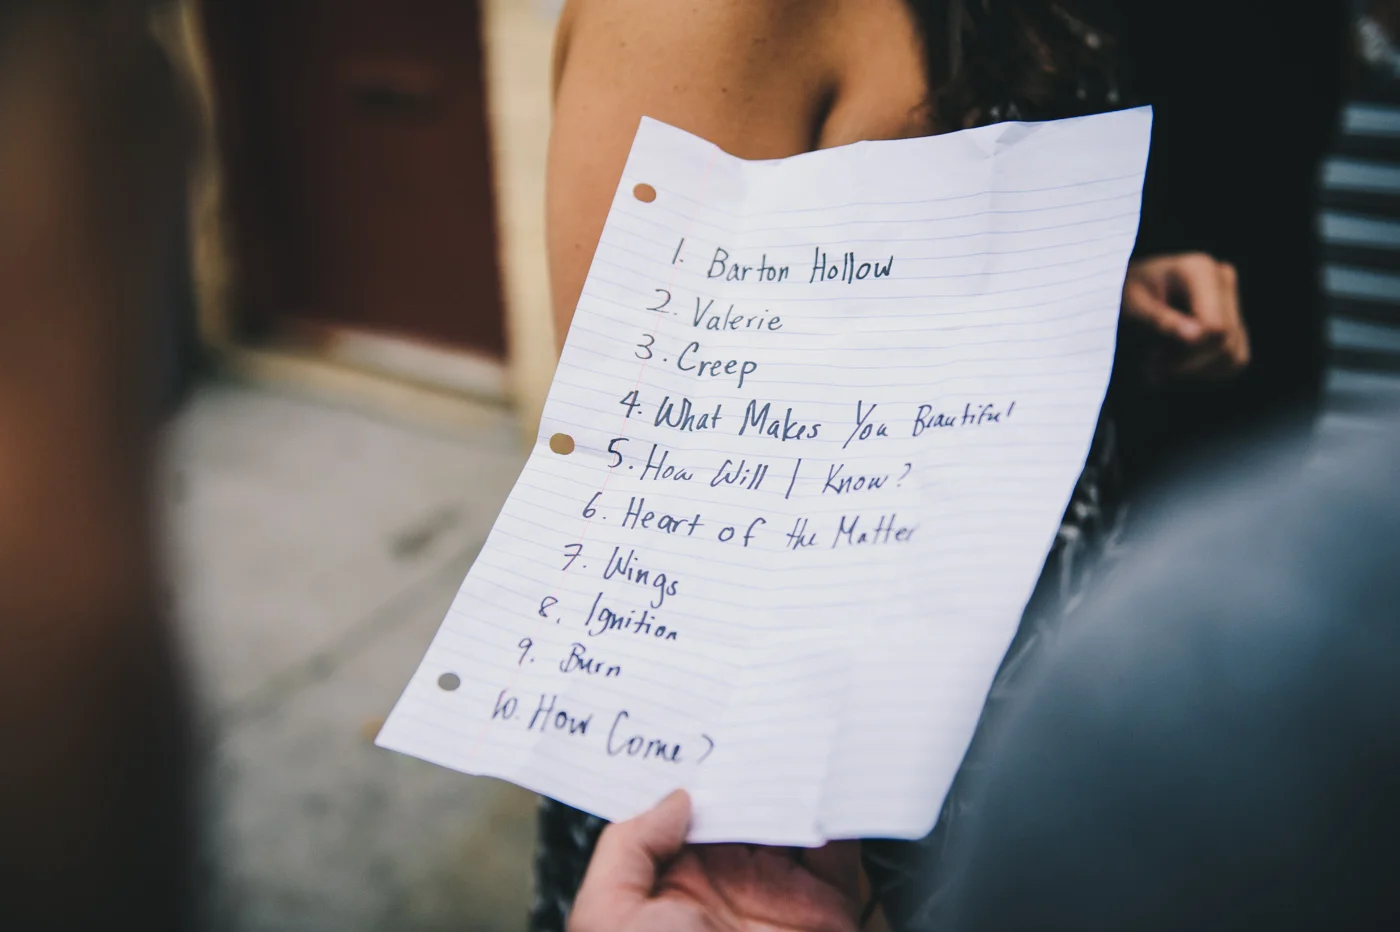 1. Barton Hollow
2. Valerie
3. Creep
4. What Makes You Beautiful
5. How Will I Know?
6. Heart of the Matter
7. Wings
8. Ignition
9. Burn
10. How Come?